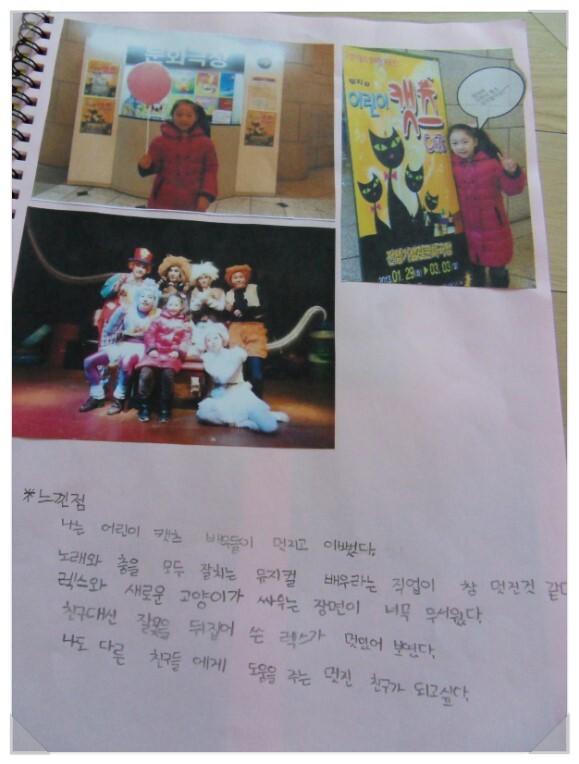 문화극장
뮤지컬
어린이 캣츠
Cats
2013 01.29(화) ▶ 03.03(일)
*느낀점
나는 어린이 캣츠 배우들이 멋지고 이뻤다.
노래와 춤을 모두 잘치는 뮤지컬 배우라는 직업이 참 멋진것 같다
렉스와 새로운 고양이가 싸우는 장면이 너무 무서웠다.
친구대신 잘못을 뒤집어 쓴 렉스가 멋있어 보였다.
나도 다른 친구들 에게 도움을 주는 멋진 친구가 되고싶다.